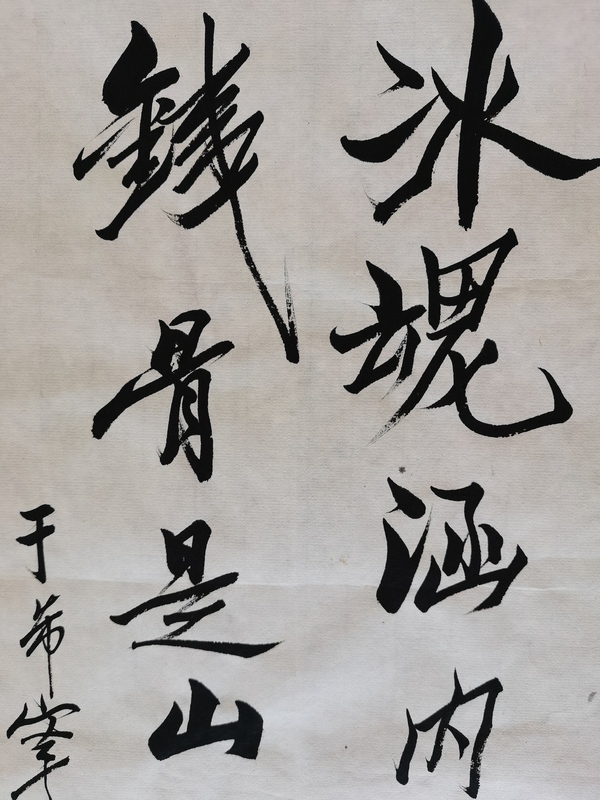 冰魂涵内
鐵骨是山
于希寧